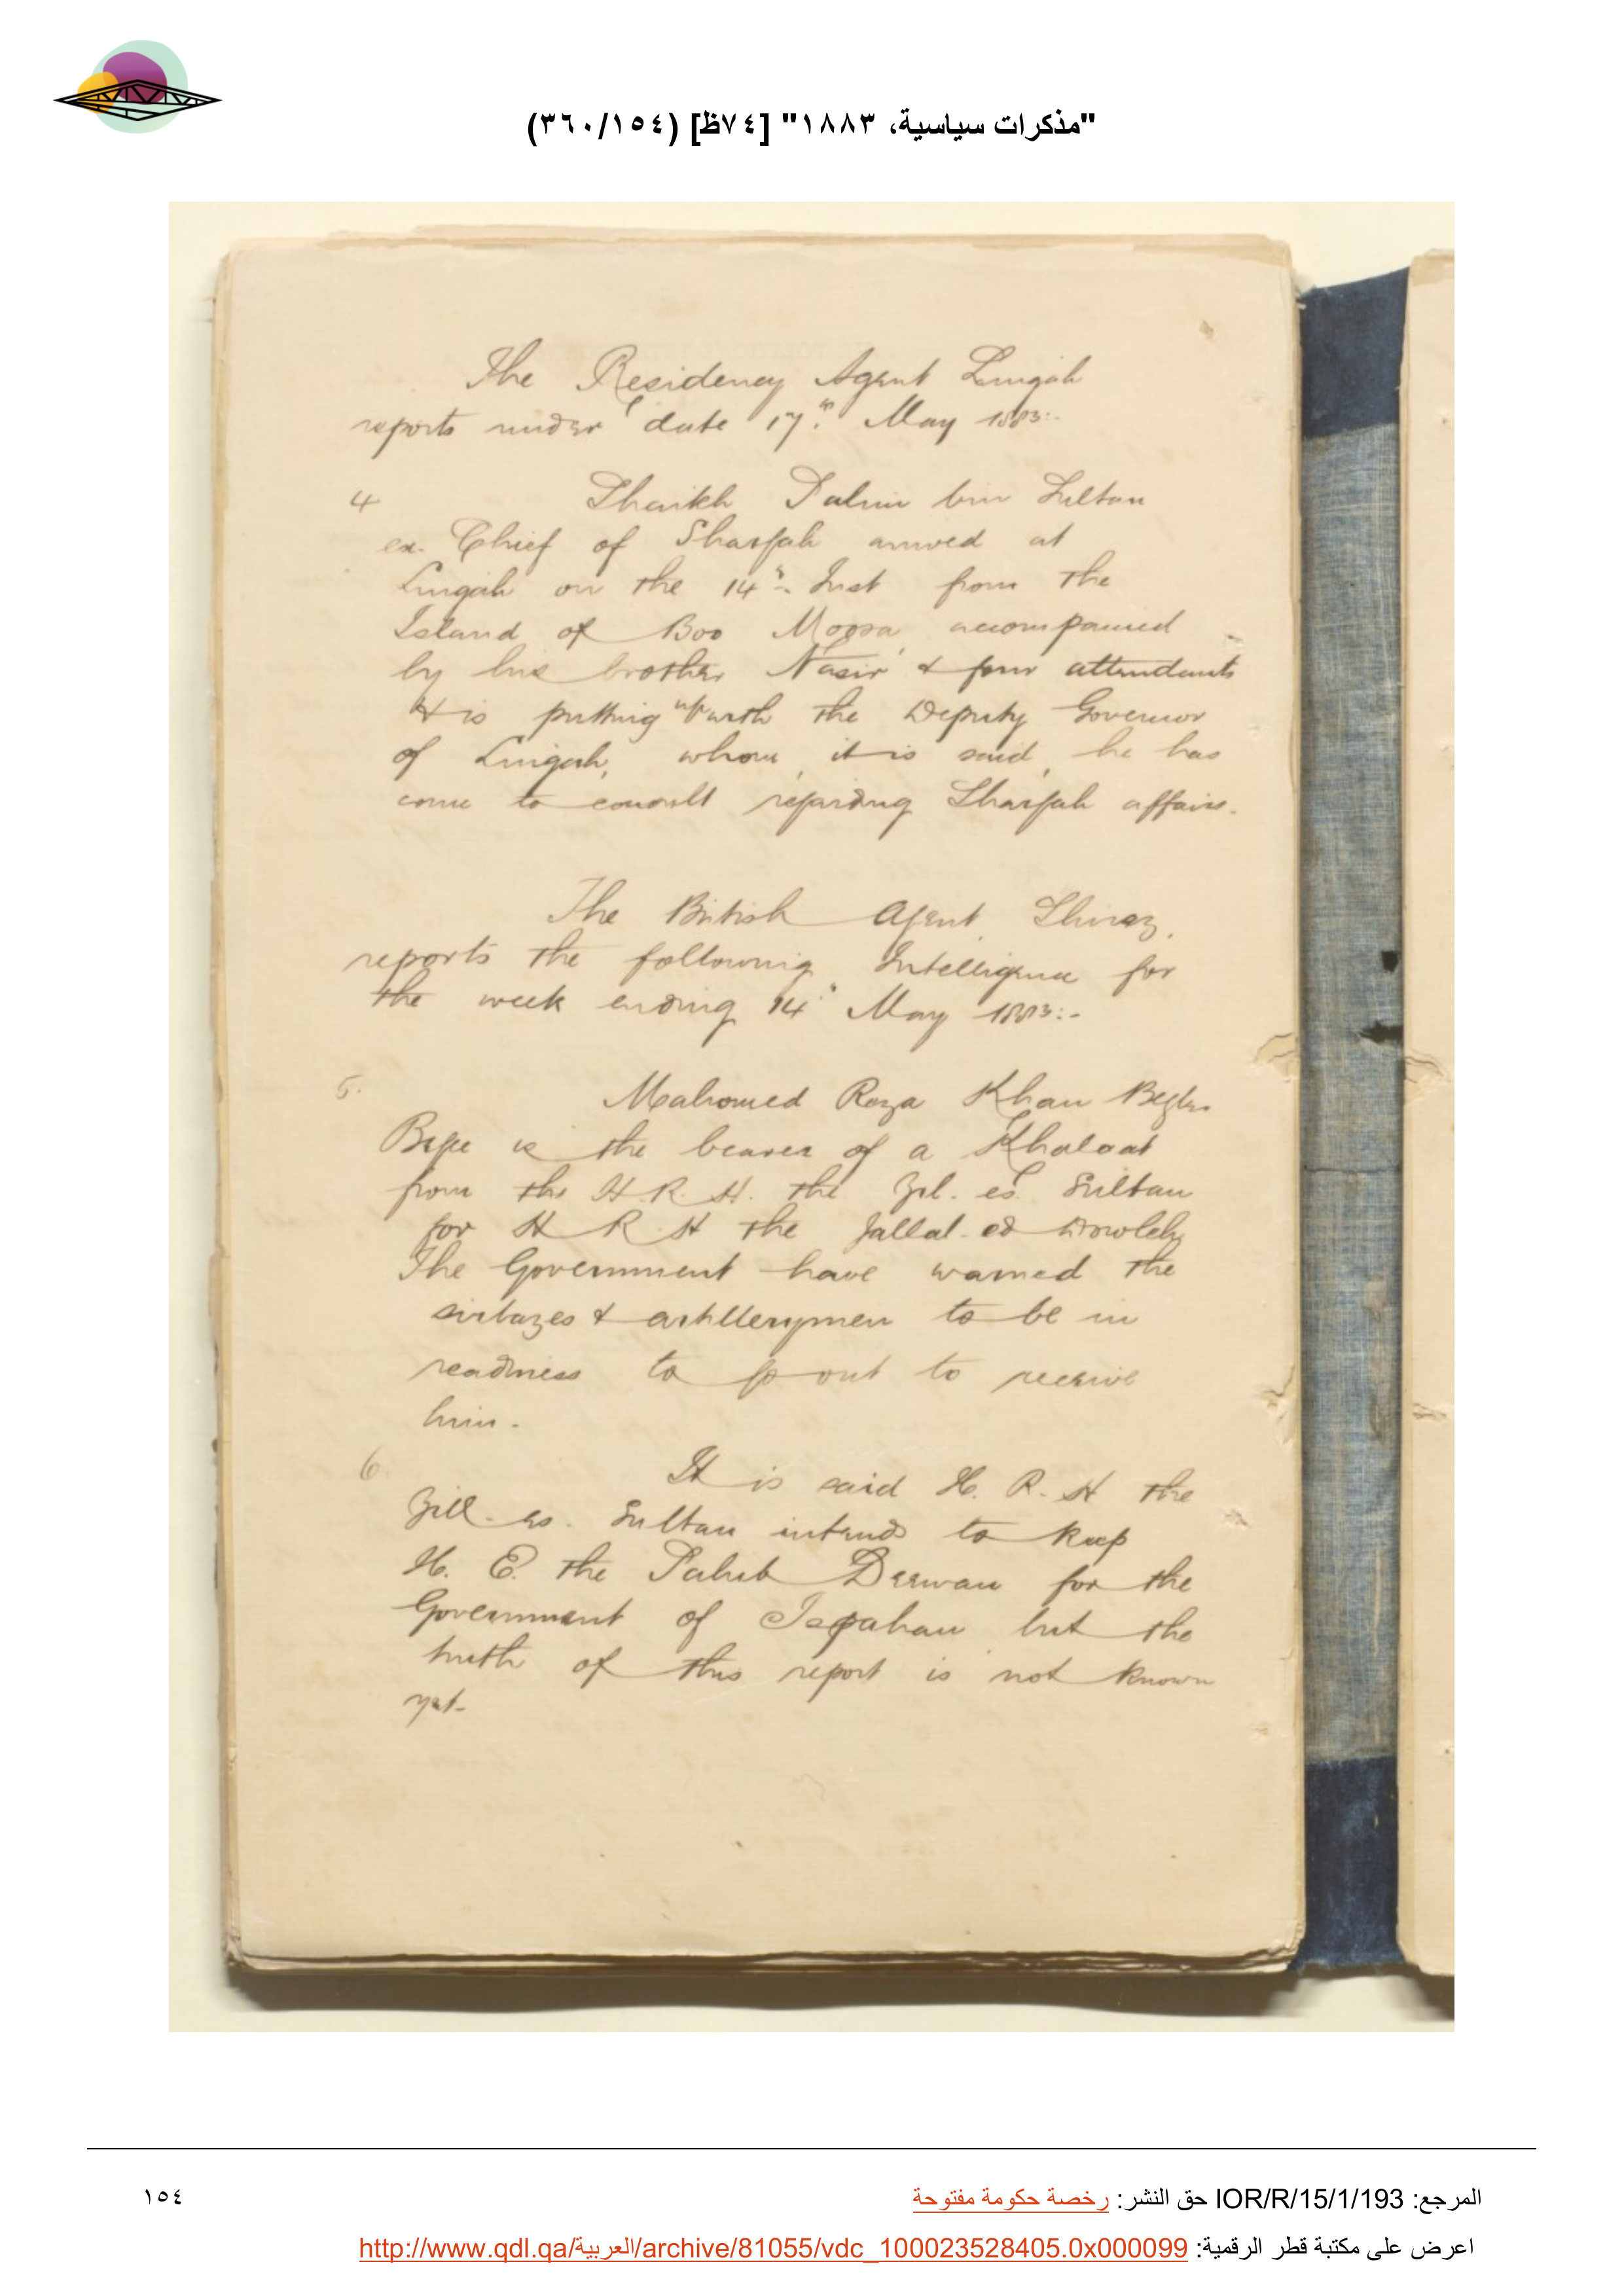 "مذكرات سياسية، ١٨٨٣" [٧٤ظ] (٣٦٠/١٥٤)
The Residency Agent Lingah
reports under date 17th May 1883:-
4 Shaikh Salim bin Sultan
ex. Chief of Sharjah arrived at
Lingah on the 14th Inst from the
Island of Boo Moosa, accompanied
by his brother Nasir & four attendants
He is putting up with the Deputy Governor
of Lingah, whom, it is said, he has
come to consult regarding Sharjah affairs.
The British Agent, Shiraz,
reports the following Intelligence for
the week ending 14th May 1883:-
5. Mahomed Roza Khan Begler
Bege is the bearer of a Khaloat
from the H. R. H. the Zil. es. Sultan
for H R H the Jallal-ed Dowleh
The Government have warned the
sirbazes & artillerymen to be in
readiness to go out to receive
him.
6 It is said H. R. H the
Zill-es-Sultan intends to keep
H. E. the Sahib Deewan for the
Government of Ispahan but the
truth of this report is not known
yet.
المرجع: IOR/R/15/1/193 حق النشر: رخصة حكومة مفتوحة
١٥٤
اعرض على مكتبة قطر الرقمية: http://www.qdl.qa/العربية/archive/81055/vdc_100023528405.0x000099